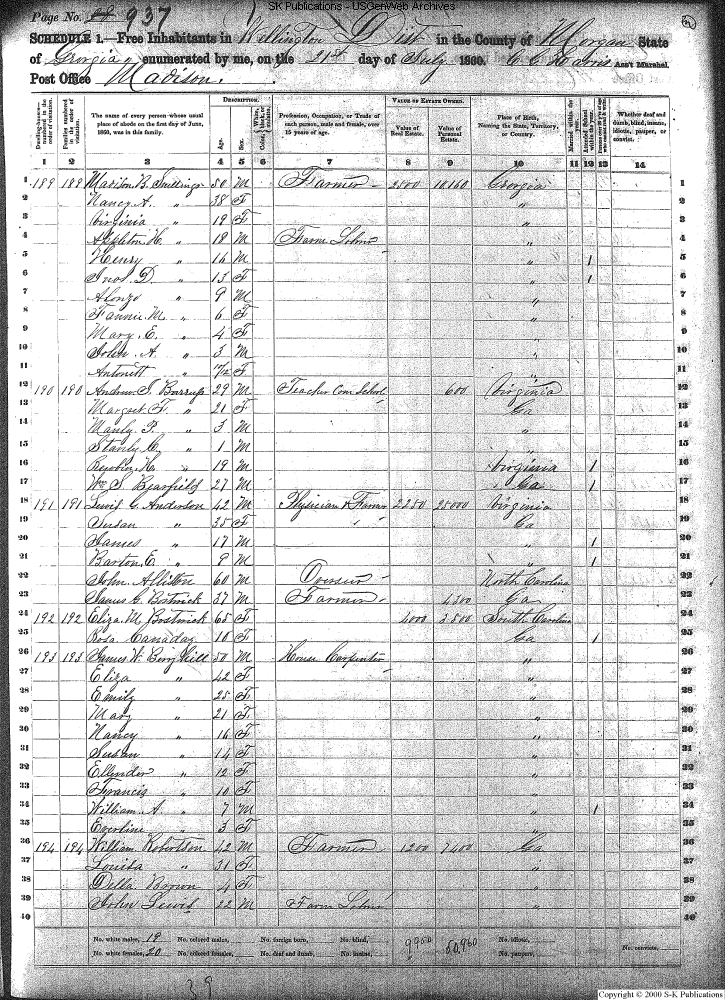 SK Publications - USGenWeb Archives
Page No. 937
SCHEDULE 1.—Free Inhabitants in Wellington Dist in the County of Morgan State
of Georgia, enumerated by me, on the 21st day of July 1860. C C Harris Ass't Marshal.
Post Office Madison.
DESCRIPTION. VALUE OF ESTATE OWNED.
Dwelling-houses—numbered in the order of visitation. Families numbered in the order of visitation. The name of every person whose usual place of abode on the first day of June, 1860, was in this family. Age. Sex. Color, White, black, or mulatto. Profession, Occupation, or Trade of each person, male and female, over 15 years of age. Value of Real Estate. Value of Personal Estate. Place of Birth, Naming the State, Territory, or Country. Married within the year. Attended School within the year. Whether deaf and dumb, blind, insane, idiotic, pauper, or convict.
1 2 3 4 5 6 7 8 9 10 11 12 13 14
1 189 189 Madison B. 50 M Farmer 2500 10,160 Georgia 1
2 Nancy A. " 38 F " 2
3 Virginia " 19 F " 3
4 H. " 18 M Farm " 4
5 Henry " 16 M " 1 5
6 D. " 13 F " 1 6
7 Alonzo " 9 M " 7
8 Fannie M. " 6 F " 8
9 Mary E. " 4 F " 9
10 John A. " 3 M " 10
11 Antonett " 7/12 F " 11
12 190 190 Andrew J. 29 M Teacher Com School 600 Virginia 12
13 Margaret F. " 21 F Ga 13
14 Manly P. " 3 M " 14
15 Stanly C. " 1 M " 15
16 H. " 19 M Virginia 1 16
17 Wm S. Bearfield 27 M Ga 1 17
18 191 191 Lewis G. Anderson 42 M Physician & Farmer 2250 25000 Virginia 18
19 Susan " 35 F " Ga 19
20 James " 17 M " 1 20
21 Barton E. " 9 M " 1 21
22 John Alliston 60 M Overseer North Carolina 22
23 James C. Bostwick 37 M Farmer 4300 Ga 23
24 192 192 Eliza M. Bostwick 65 F 4000 3500 South Carolina 24
25 Rosa Canaday 10 F Ga 1 25
26 193 193 James W. 50 M House Carpenter " 26
27 Eliza " 42 F " 27
28 Emily " 25 F " 28
29 Mary " 21 F " 29
30 Nancy " 16 F " 30
31 Susan " 14 F " 31
32 Ellender " 12 F " 32
33 Francis " 10 F " 33
34 William A. " 7 M " 1 34
35 Everline " 3 F " 35
36 194 194 William Robertson 42 M Farmer 1200 7400 Ga 36
37 Louisa " 31 F " 37
38 Della Brown 4 F " 38
39 John Lewis 22 M Farm " 39
40 40
No. white males, 19 No. colored males, No. foreign born, No. blind, 9950 50,960 No. idiotic,
No. white females, 20 No. colored females, No. deaf and dumb, No. insane, No. paupers, No. convicts,
29
Copyright © 2000 S-K Publications